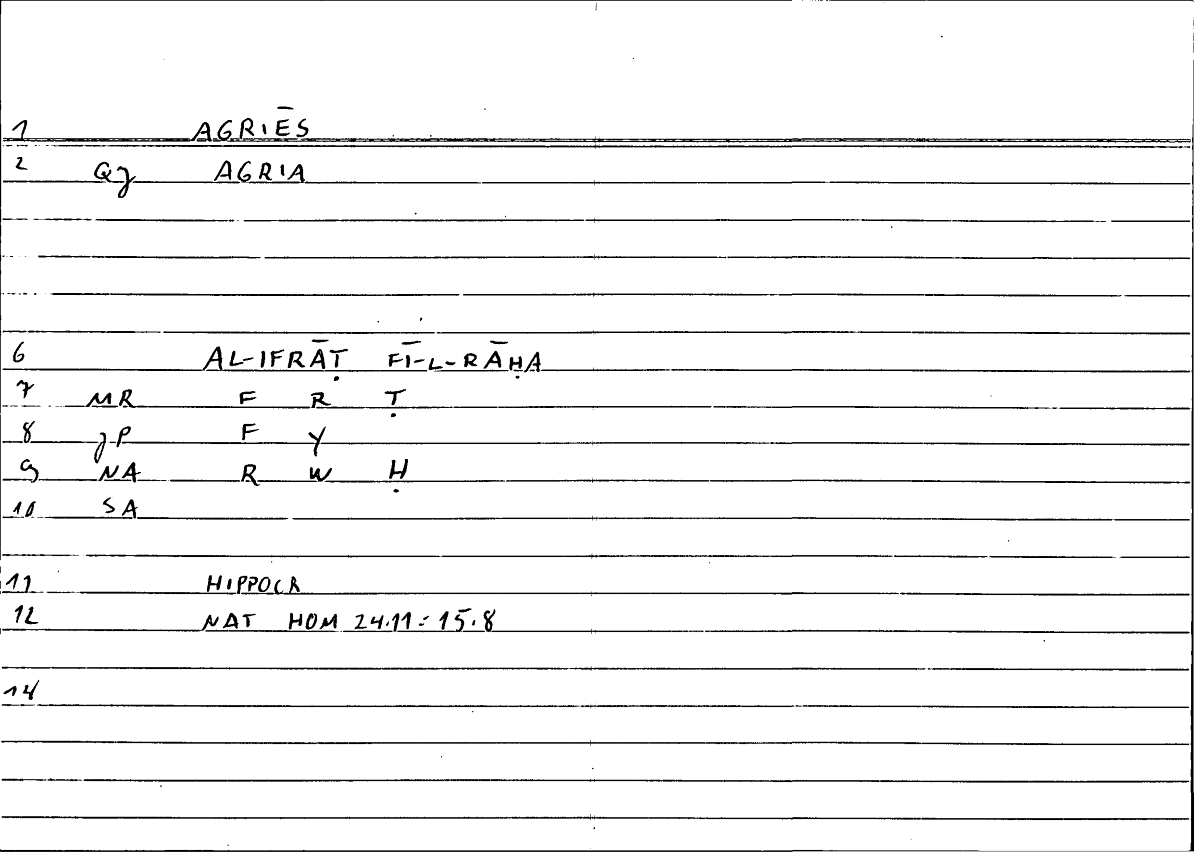 1 AGRIĒS
2 Qȝ AGRIA
6 AL-IFRĀṬ FĪ-L-RĀḤA
7 MR F R Ṭ
8 ȝP F Y
9 NA R W Ḥ
10 SA
11 HIPPOCR
12 NAT HOM 24.11 = 15.8
14